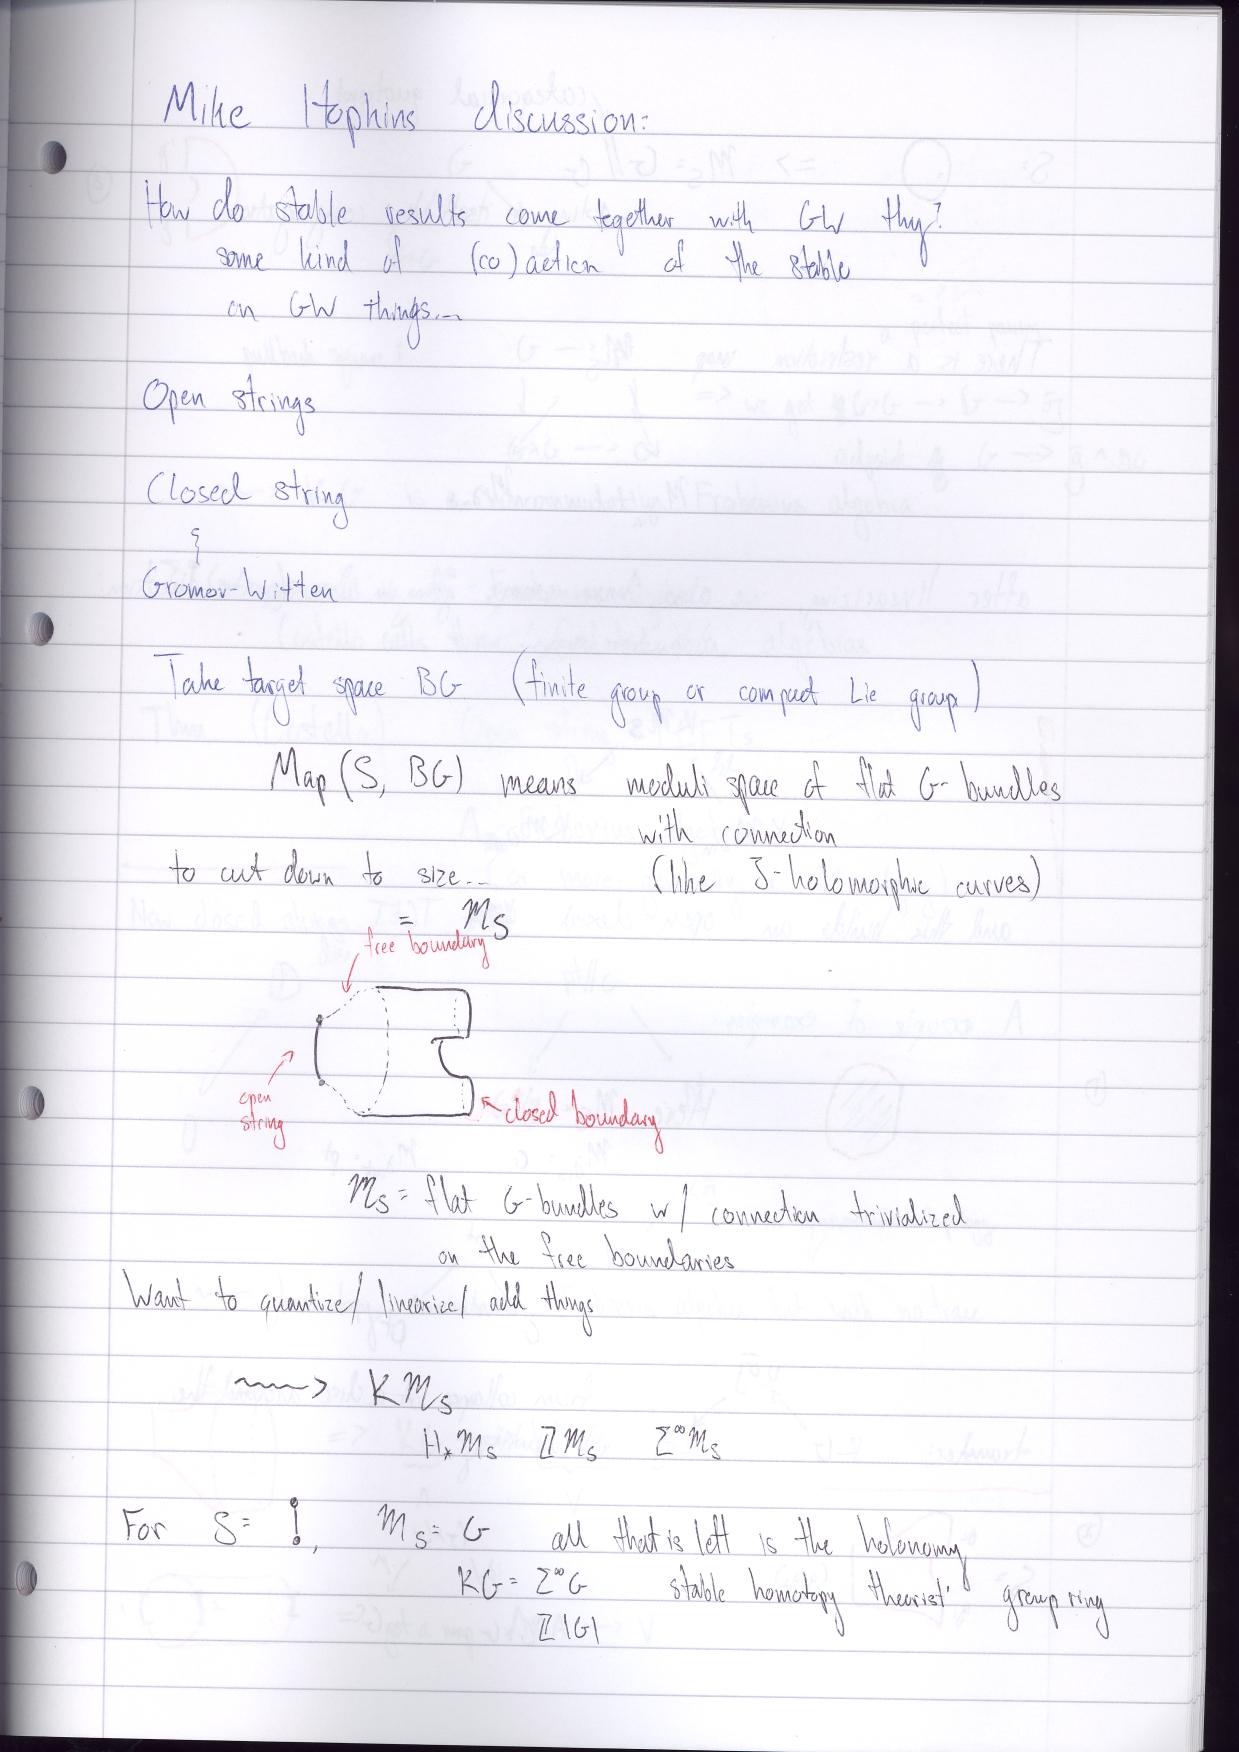 Mike Hopkins discussion:
How do stable results come together with GW thy?
some kind of (co)action of the stable
on GW things...
Open strings
Closed string
Gromov-Witten
Take target space BG (finite group or compact Lie group)
Map(S, BG) means moduli space of flat G-bundles
with connection
to cut down to size... (like J-holomorphic curves)
= 𝓜_S
free boundary
open
string
closed boundary
𝓜_S = flat G-bundles w/ connection trivialized
on the free boundaries
Want to quantize/linearize/add things
⇝ K𝓜_S
H_*𝓜_S ℤ𝓜_S Σ^∞𝓜_S
For S = , 𝓜_S = G all that is left is the holonomy
KG = Σ^∞G stable homotopy theorist' group ring
ℤ|G|